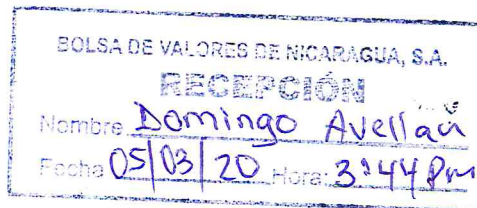 BOLSA DE VALORES DE NICARAGUA, S.A.
RECEPCIÓN
Nombre Domingo Avellan
Fecha 05/03/20 Hora: 3:44 Pm